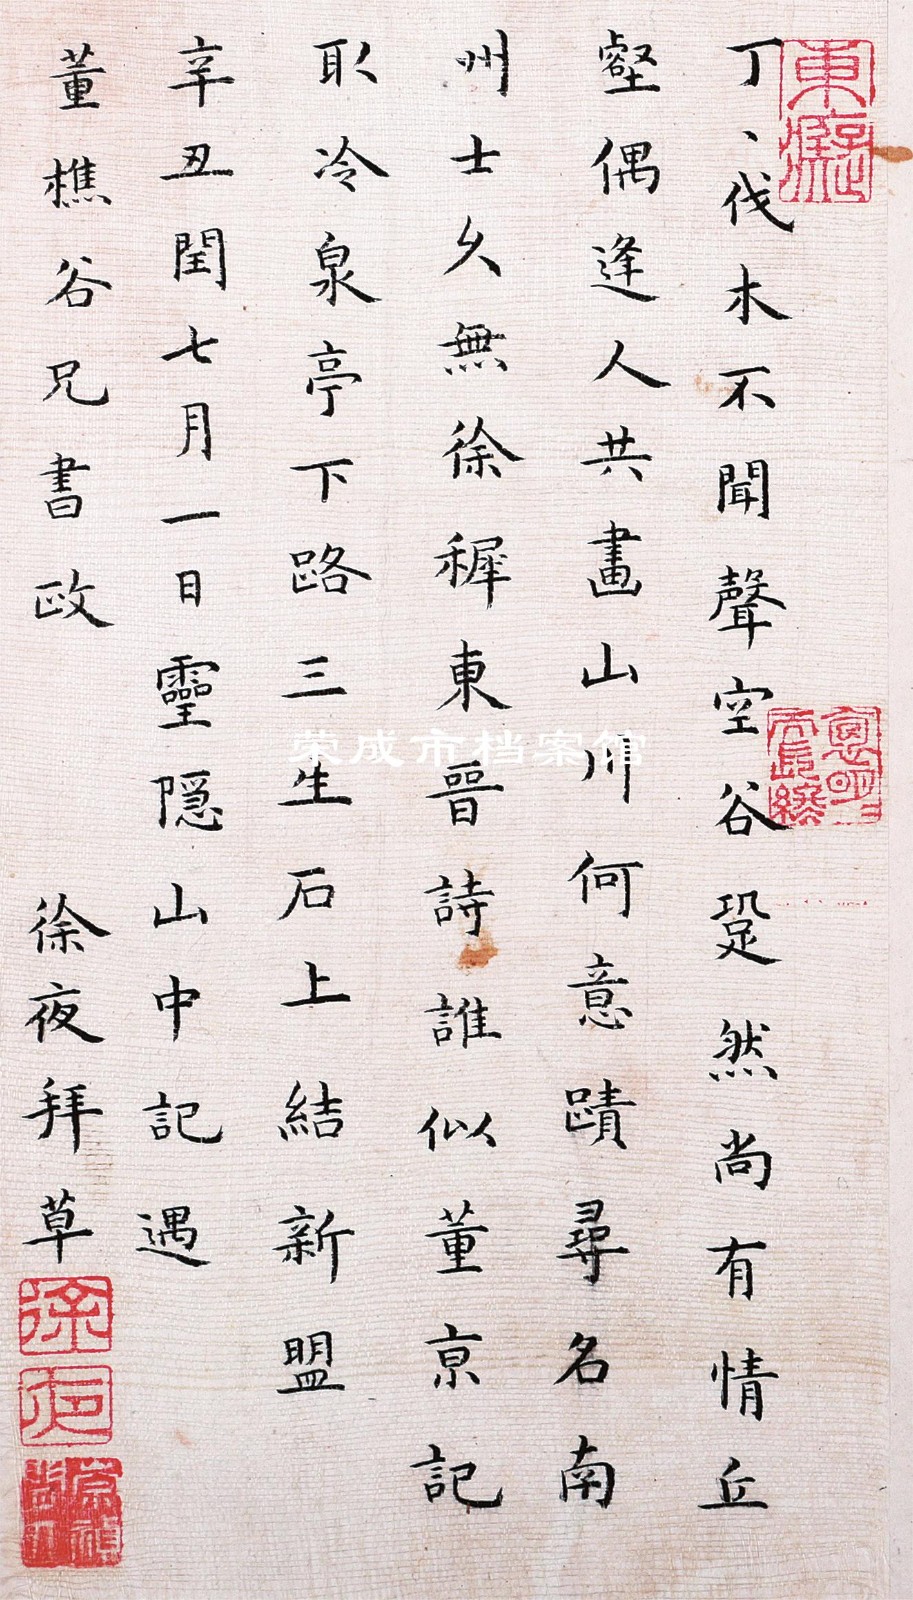 丁丶伐木不聞聲空谷跫然尚有情丘
壑偶逢人共畫山川何意蹟尋名南
州士久無徐穉東晉詩誰似董京記
取冷泉亭下路三生石上結新盟
辛丑閏七月一日靈隱山中記遇
董樵谷兄書政 徐夜拜草
東癡
徐夜
荣成市档案馆